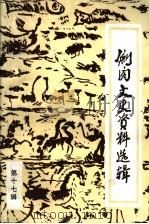 劍阁文史资料选辑
第十七辑